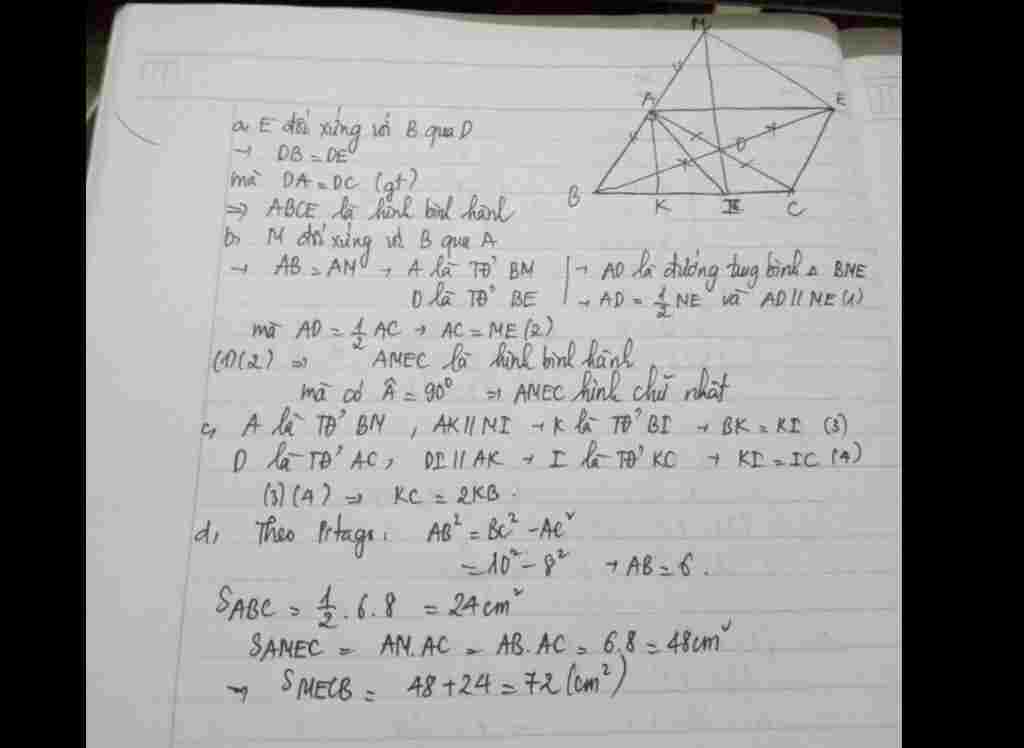 M
A
E
D
B
K
I
C
a, E đối xứng với B qua D
→ DB = DE
mà DA = DC (gt)
=> ABCE là hình bình hành
b, M đối xứng với B qua A
→ AB = AM → A là TĐ' BM | → AD là đường tung bình △ BME
D là TĐ' BE | → AD = 1/2 ME và AD // ME (1)
mà AD = 1/2 AC → AC = ME (2)
(1)(2) => AMEC là hình bình hành
mà có Â = 90° => AMEC hình chữ nhật
c, A là TĐ' BM, AK // MI → K là TĐ' BI → BK = KI (3)
D là TĐ' AC, DI // AK → I là TĐ' KC → KI = IC (4)
(3)(4) => KC = 2KB.
d, Theo Pitago: AB² = BC² - AC²
= 10² - 8² → AB = 6.
SABC = 1/2 . 6 . 8 = 24cm²
SAMEC = AM.AC = AB.AC = 6.8 = 48cm²
→ SMECB = 48 + 24 = 72 (cm²)